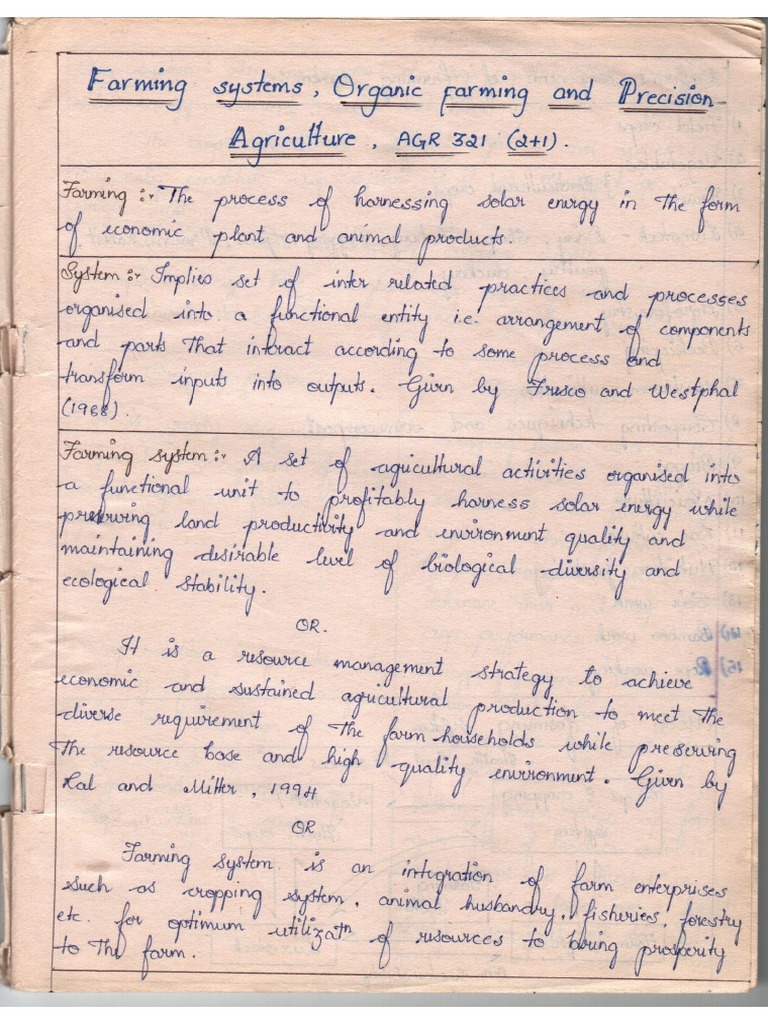 Farming systems, Organic farming and Precision
Agriculture, AGR 321 (2+1).
Farming :- The process of harnessing solar energy in the form
of economic plant and animal products.
System :- Implies set of inter related practices and processes
organised into a functional entity i.e. arrangement of components
and parts that interact according to some process and
transform inputs into outputs. Given by Fresco and Westphal
(1988).
Farming system :- A set of agricultural activities organised into
a functional unit to profitably harness solar energy while
preserving land productivity and environment quality and
maintaining desirable level of biological diversity and
ecological stability.
OR.
It is a resource management strategy to achieve
economic and sustained agricultural production to meet the
diverse requirement of the farm households while preserving
the resource base and high quality environment. Given by
Lal and Mitter, 1994
OR
Farming system is an integration of farm enterprises
such as cropping system, animal husbandry, fisheries, forestry
etc. for optimum utilizatn of resources to bring prosperity
to the farm.